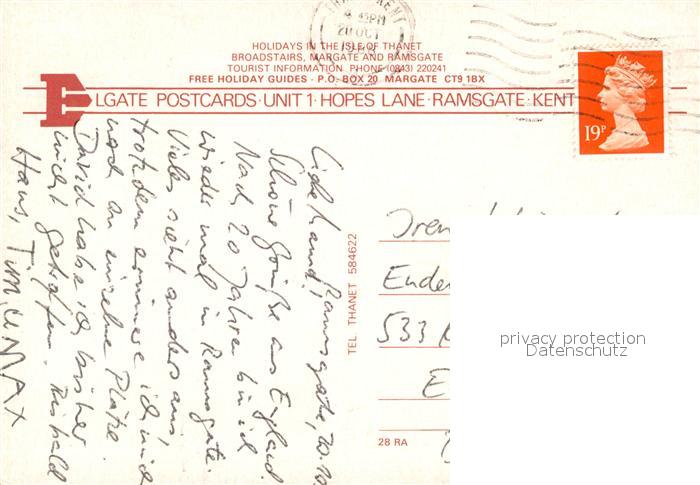 THANET KENT
4 45PM
20 OCT
HOLIDAYS IN THE ISLE OF THANET
BROADSTAIRS, MARGATE AND RAMSGATE
TOURIST INFORMATION PHONE (0843) 220241
FREE HOLIDAY GUIDES - P.O. BOX 20 MARGATE CT9 1BX
ELGATE POSTCARDS · UNIT 1 · HOPES LANE · RAMSGATE · KENT
19P
Ramsgate, 20.10.
Schöne Grüße aus England.
Nach 20 Jahren bin ich
wieder mal in Ramsgate.
Vieles sieht anders aus,
trotzdem erinnere ich mich
noch an einzelne Plätze.
David habe ich bisher
nicht getroffen. Bis bald
Hans, Tim, u. MAX
TEL THANET 584622
Iren
Ende
533
E
28 RA
privacy protection
Datenschutz